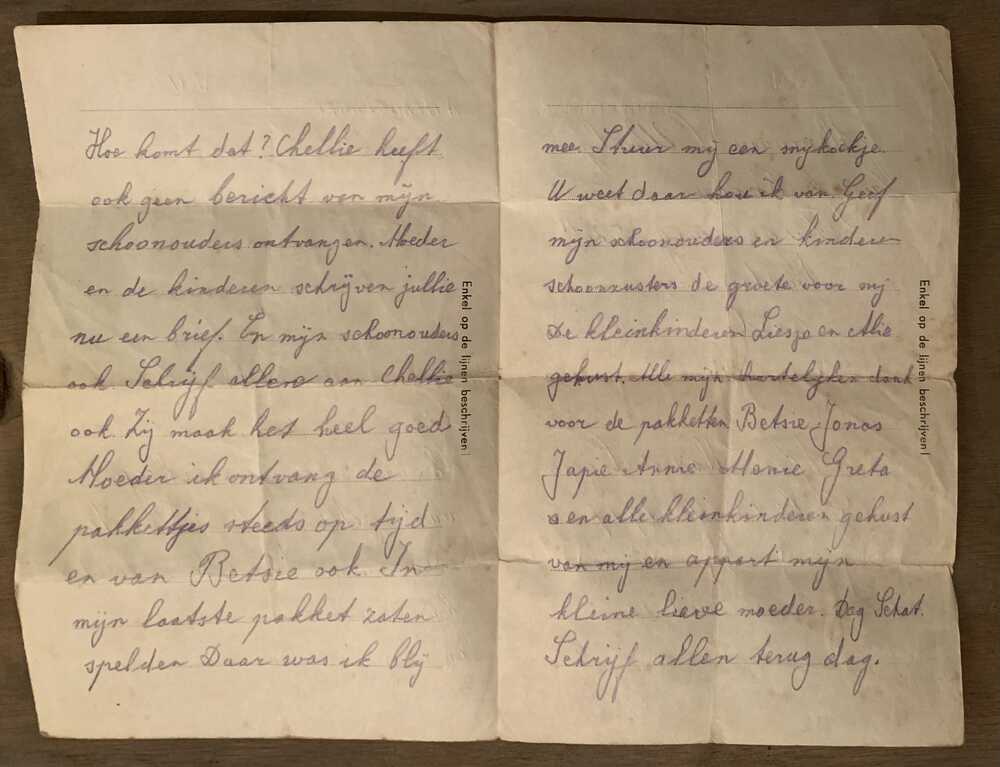 Hoe komt dat? Chellie heeft
ook geen bericht van mijn
schoonouders ontvangen. Moeder
en de kinderen schrijven jullie
nu een brief. En mijn schoonouders
ook. Schrijf allere aan Chellie
ook. Zij maak het heel goed
Moeder ik ontvang de
pakkettjes steeds op tijd
en van Betsie ook. In
mijn laatste pakket zaten
spelden Daar was ik blij
Enkel op de lijnen beschrijven!
mee. Stuur mij een snykoekje.
U weet daar hou ik van. Geef
mijn schoonouders en kinderen
schoonzusters de groete voor mij
De kleinkinderen Liesje en Alie
gekust. Alle mijn hartelijken dank
voor de pakketten Betsie Jonas
Japie Annie Monie Greta
en alle kleinkinderen gekust
van mij en appart mijn
kleine lieve moeder. Dag Schat.
Schrijf allen terug dag.
Enkel op de lijnen beschrijven!